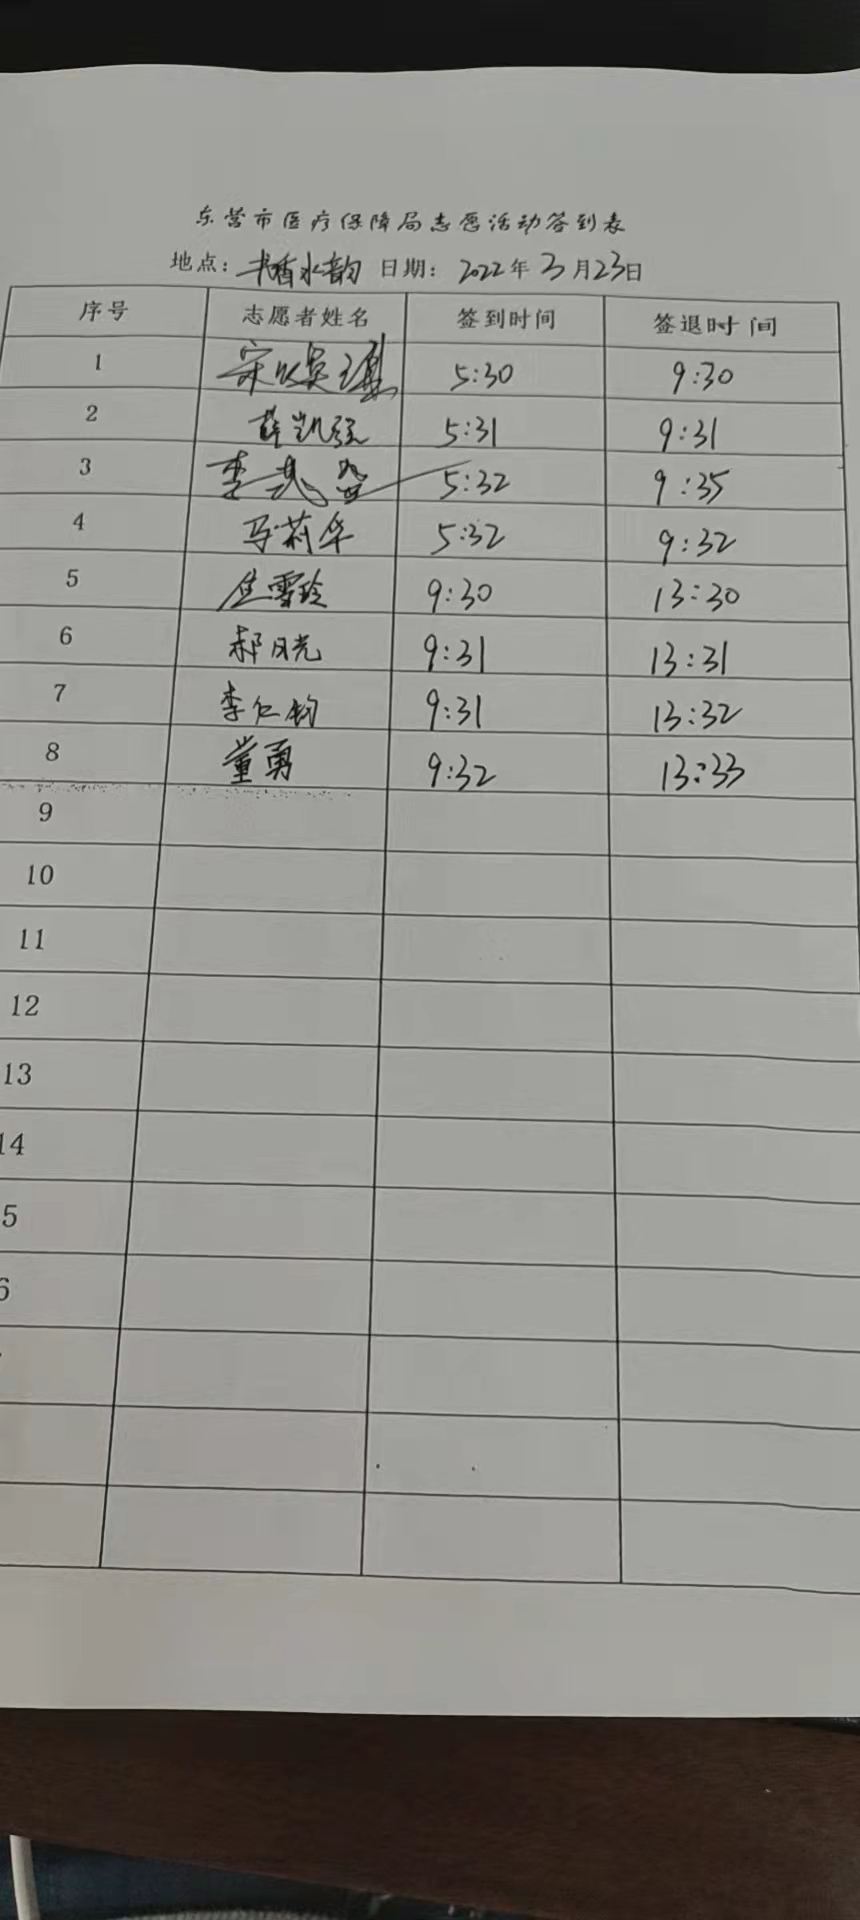 东营市医疗保障局志愿活动签到表
地点：书香水韵 日期：2022年3月23日
序号 志愿者姓名 签到时间 签退时间
1 5:30 9:30
2 薛凯强 5:31 9:31
3 李 5:32 9:35
4 马莉华 5:32 9:32
5 焦雪玲 9:30 13:30
6 郝日光 9:31 13:31
7 李仁钧 9:31 13:32
8 董勇 9:32 13:33
9
10
11
12
13
14
5
6